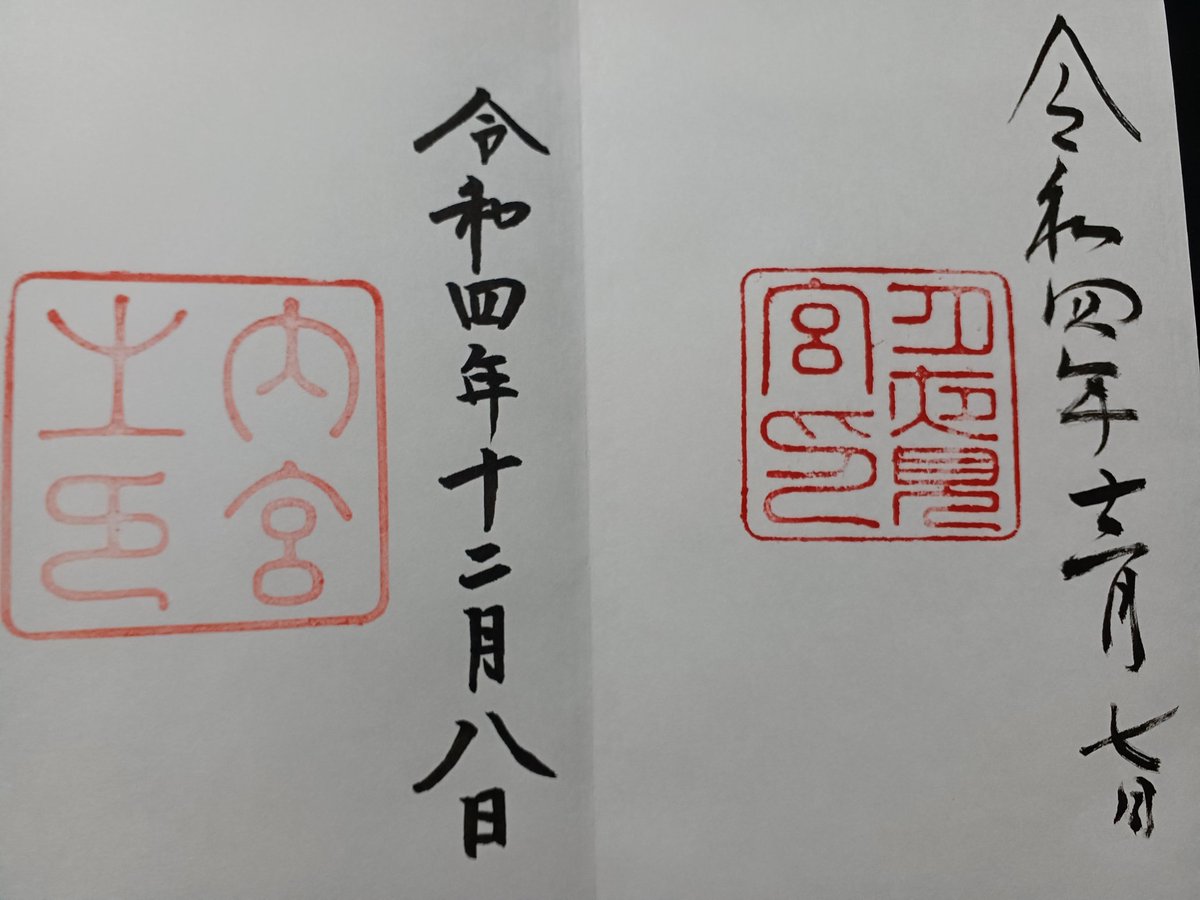 令和四年十二月七日
月夜見
宮印
令和四年十二月八日
内宮
之印